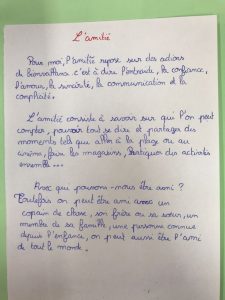 L'amitié
Pour moi, l'amitié repose sur des actions
de bienveillance c'est à dire l'entraide, la confiance,
l'amour, la sincérité, la communication et la
complicité.
L'amitié consiste à savoir sur qui l'on peut
compter, pouvoir tout se dire et partager des
moments tels que aller à la plage ou au
cinéma, faire les magasins, pratiquer des activités
ensemble ...
Avec qui pouvons-nous être ami ?
Toutefois on peut être ami avec un
copain de classe, son frère ou sa sœur, un
membre de sa famille, une personne connue
depuis l'enfance, on peut aussi être l'ami
de tout le monde.